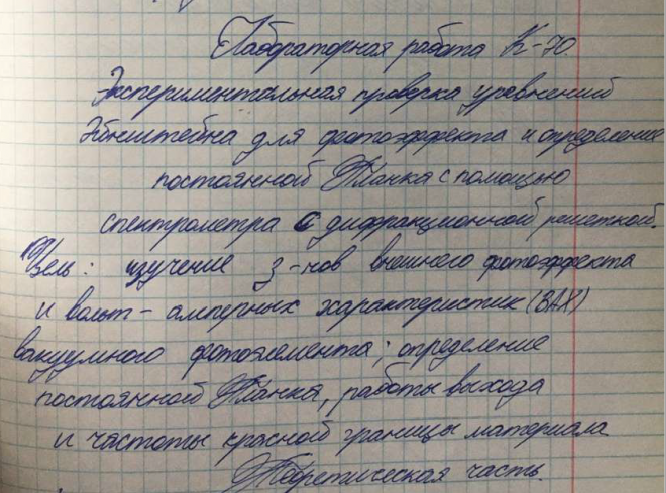 Лабораторная работа К-70.
Экспериментальная проверка уравнений
Эйнштейна для фотоэффекта и определение
постоянной Планка с помощью
спектрометра с дифракционной решеткой.
Цель: изучение з-нов внешнего фотоэффекта
и вольт-амперных характеристик (ВАХ)
вакуумного фотоэлемента; определение
постоянной Планка, работы выхода
и частоты красной границы материала
Теоретическая часть.